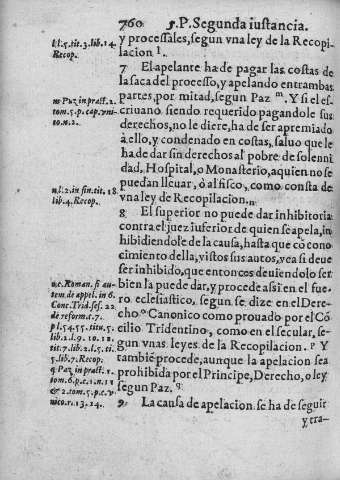 760 5.P.Segunda instancia.
y processales, segun vna ley de la Recopi-
lacion l.
7 El apelante ha de pagar las costas de
la saca del processo, y apelando entrambas
partes, por mitad, segun Paz m. Y si el es-
criuano siendo requerido pagandole sus
derechos, no le diere, ha de ser apremiado
à ello, y condenado en costas, saluo que le
ha de dar sin derechos al pobre de solenni
dad, Hospital, o Monasterio, aquien no se
puedan lleuar, ò al fisco, como consta de
vna ley de Recopilacion. n
8 El superior no puede dar inhibitoria
contra el juez inferior de quien se apela, in
hibidiendole de la causa, hasta que cõ cono
cimiento della, vistos sus autos, vea si deue
ser inhibido, que entonces deuiendolo ser
bien la puede dar, y procede assi en el fue-
ro eclesiastico, segun se dize en el Dere-
cho o Canonico como prouado por el Cõ
cilio Tridentino, como en el secular, se-
gun vnas leyes de la Recopilacion. p Y
tambiẽ procede, aunque la apelacion sea
prohibida por el Principe, Derecho, o ley
segun Paz. q
9 La causa de apelacion se ha de seguir
y tra-
l l.5.tit.3.lib.14.
Recop.
m Paz in pract. 1.
tom.5.p.cap.vni-
to.n.2.
n l.2. in fin.tit.18.
lib.4.Recop.
o c. Roman. si au-
tem de appel. in 6.
Conc.Trid.ses.22
de reform.c.7.
p l.54.55.titu.5.
lib.2.l.9.10.11.
tit.7.lib.2.l.5.ti.
5.lib.7.Recop.
q Paz in pract.1.
tom.6.p.c.1.n.11
& 2.tom.5.p.c.v-
nico.r.13.14.